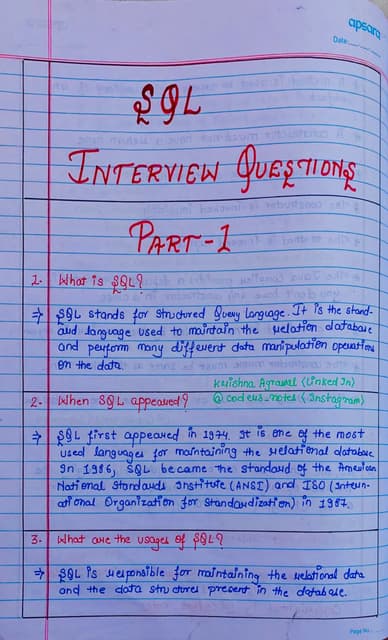 apsara
Date:
SQL
INTERVIEW QUESTIONS
PART-1
1. What is SQL?
→ SQL stands for Structured Query Language. It is the stand-
ard language used to maintain the relation database
and perform many different data manipulation operations
on the data.
Krishna Agrawal (Linked In)
2. When SQL appeared? @coders_notes (Instagram)
→ SQL first appeared in 1974. It is one of the most
used languages for maintaining the relational database.
In 1986, SQL became the standard of the American
National Standards Institute (ANSI) and ISO (Intern-
ational Organization for Standardization) in 1987.
3. What are the usages of SQL?
→ SQL is responsible for maintaining the relational data
and the data structures present in the database.
Page No.